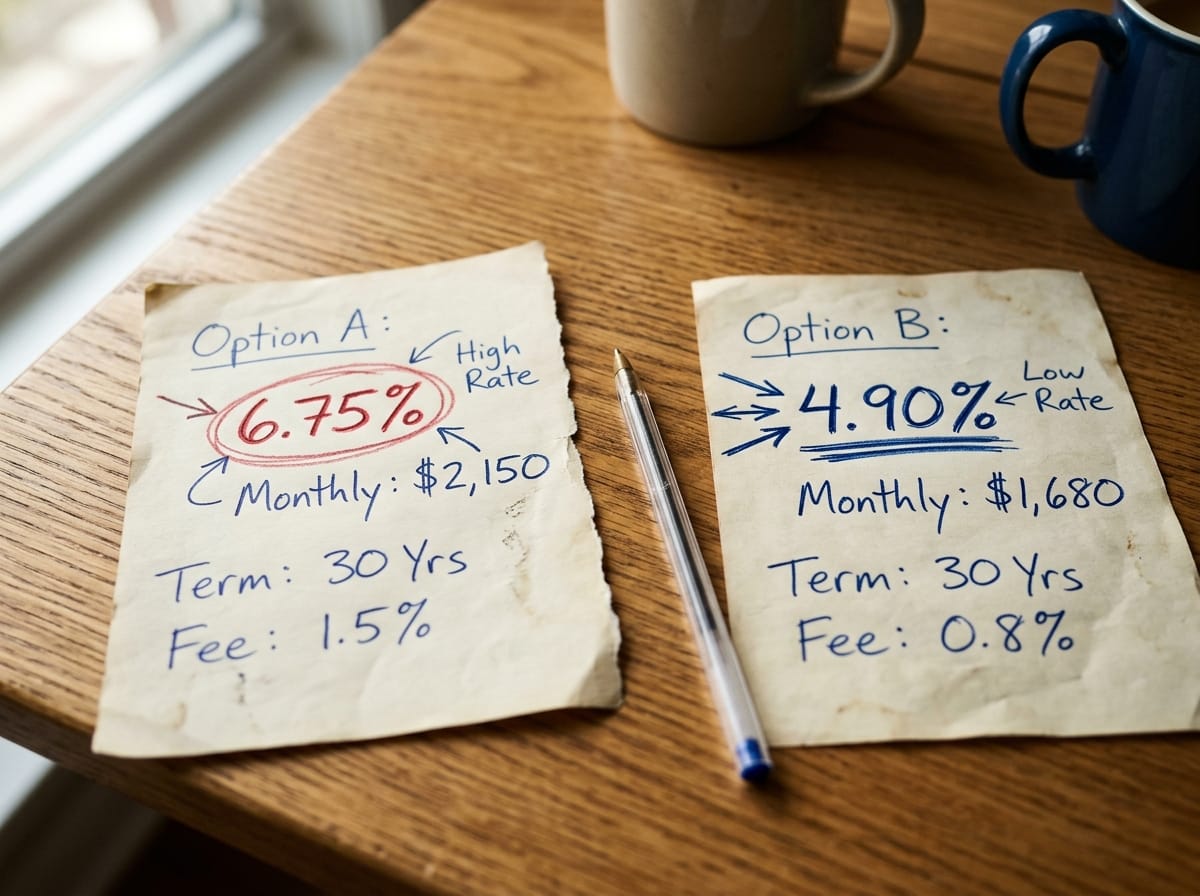 Option A:
High
Rate
6.75%
Monthly: $2,150
Term: 30 Yrs
Fee: 1.5%
Option B:
Low
Rate
4.90%
Monthly: $1,680
Term: 30 Yrs
Fee: 0.8%